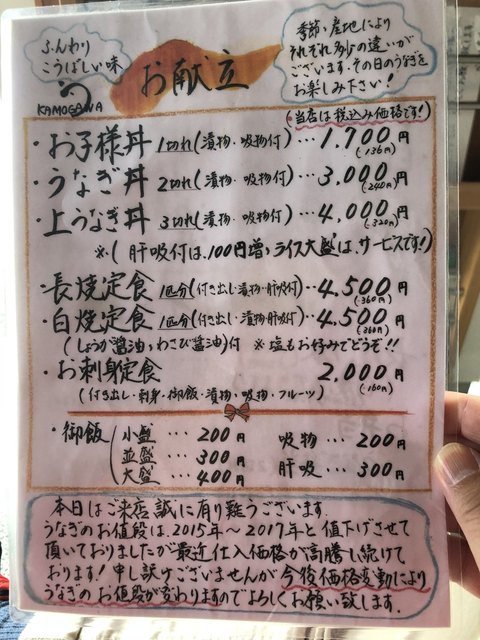 ふんわり
こうばしい味
う
KAMOGAWA
お献立
季節・産地により
それぞれ多少の違いが
ございます。その日のうなぎを
お楽しみ下さい!
(当店は税込み価格です!)
・お子様丼 1切れ(漬物・吸物付)…1,700円
(136円)
・うなぎ丼 2切れ(漬物・吸物付)…3,000円
(240円)
・上うなぎ丼 3切れ(漬物・吸物付)…4,000円
(320円)
※(肝吸付は、100円増、ライス大盛は、サービスです!)
・長焼定食 1匹分(付き出し・漬物・肝吸付)…4,500円
(360円)
・白焼定食 1匹分(付き出し・漬物・肝吸付)…4,500円
(360円)
(しょうが醤油、わさび醤油)付 ※塩もお好みでどうぞ!!
・お刺身定食 2,000円
(160円)
(付き出し・刺身・御飯・漬物・吸物・フルーツ)
・御飯 小盛 … 200円 吸物 … 200円
並盛 … 300円 肝吸 … 300円
大盛 … 400円
本日はご来店誠に有り難うございます。
うなぎのお値段は、2015年~2017年と値下げさせて
頂いておりましたが最近仕入価格が高騰し続けて
おります!申し訳ございませんが今後価格変動により
うなぎのお値段が変わりますのでよろしくお願い致します。